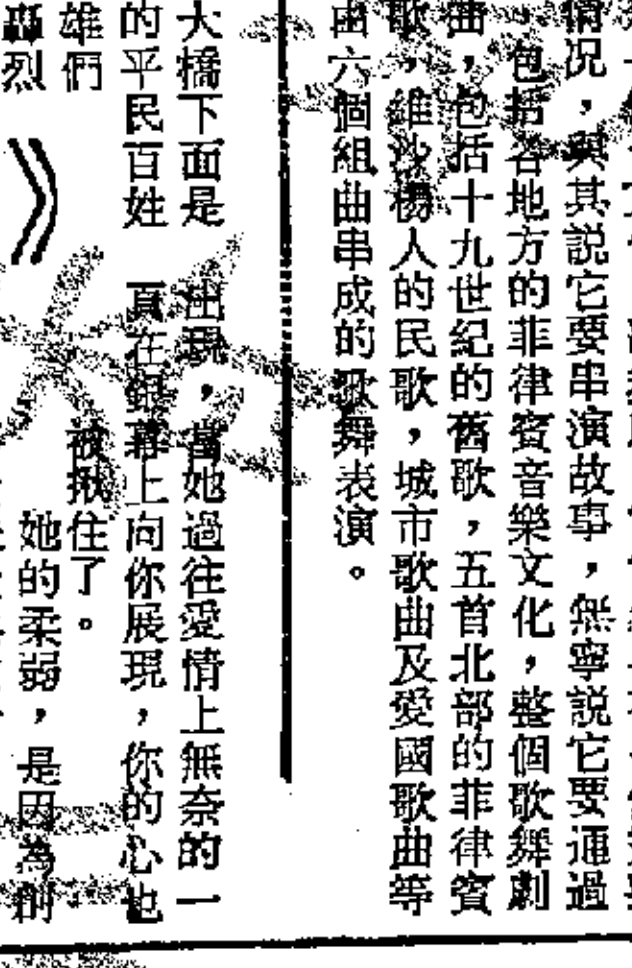 情况，與其説它要串演故事，無寧説它要通過
包括各地方的菲律賓音樂文化，整個歌舞劇
曲，包括十九世紀的舊歌，五首北部的菲律賓
歌，維沙揚人的民歌，城市歌曲及愛國歌曲等
由六個組曲串成的歌舞表演。
大橋下面是
的平民百姓
雄們
轟烈
》
出現，當她過往愛情上無奈的一
頁在銀幕上向你展現，你的心也
被揪住了。
她的柔弱，是因為創